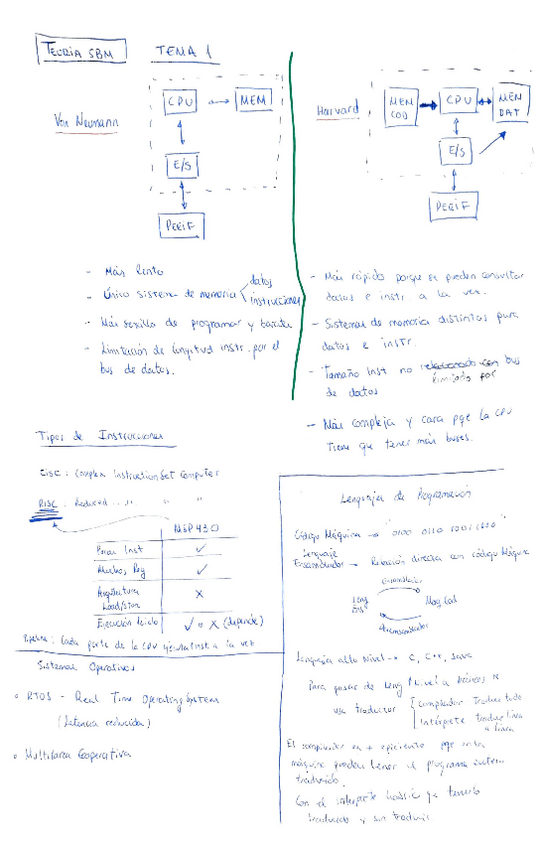 TEORIA SBM
TEMA 1
Von Neumann
CPU
MEM
E/S
PERIF
- Más lento
- Único sistema de memoria
datos
instrucciones
- Más sexillo de programar y barata
- Limitación de longitud instr. por el
bus de datos.
Harvard
MEM
COD
CPU
MEM
DAT
E/S
PERIF
- Más rápido porque se pueden consultar
datos e instr a la vez.
- Sistemas de memoria distintos para
datos e instr.
- Tamaño Inst no relacionado con bus
limitado por
de datos
- Más compleja y cara pqe la CPU
tiene que tener más buses.
Tipos de Instrucciones
CISC: Complex Instruction Set Computer
RISC: Reduced " " "
MSP430
Pocas Inst ✓
Muchos Reg ✓
Arquitectura X
Load/stor
Ejecución 1 ciclo ✓ o X (depende)
Pipeline: Cada parte de la CPU ejecuta inst a la vez
Sistemas Operativos
o RTOS - Real Time Operating System
(latencia reducida)
o Multitarea Cooperativa
Lenguajes de Programación
Código Máquina → "0100 0110
Lenguaje
Ensamblador → Relación directa con código Máquina
Ensamblador
Leng
Ens
Maq Cod
Desensamblador
Lenguaje alto Nivel → C, C++, Java
Para pasar de Leng ↑ nivel a
usa traductor
compilador traduce todo
Intérprete traduce línea
a línea
El compilador es + eficiente pqe en la
máquina puedes tener el programa
traducido.
Con el interprete habría que tenerlo
traducido y sin traducir.